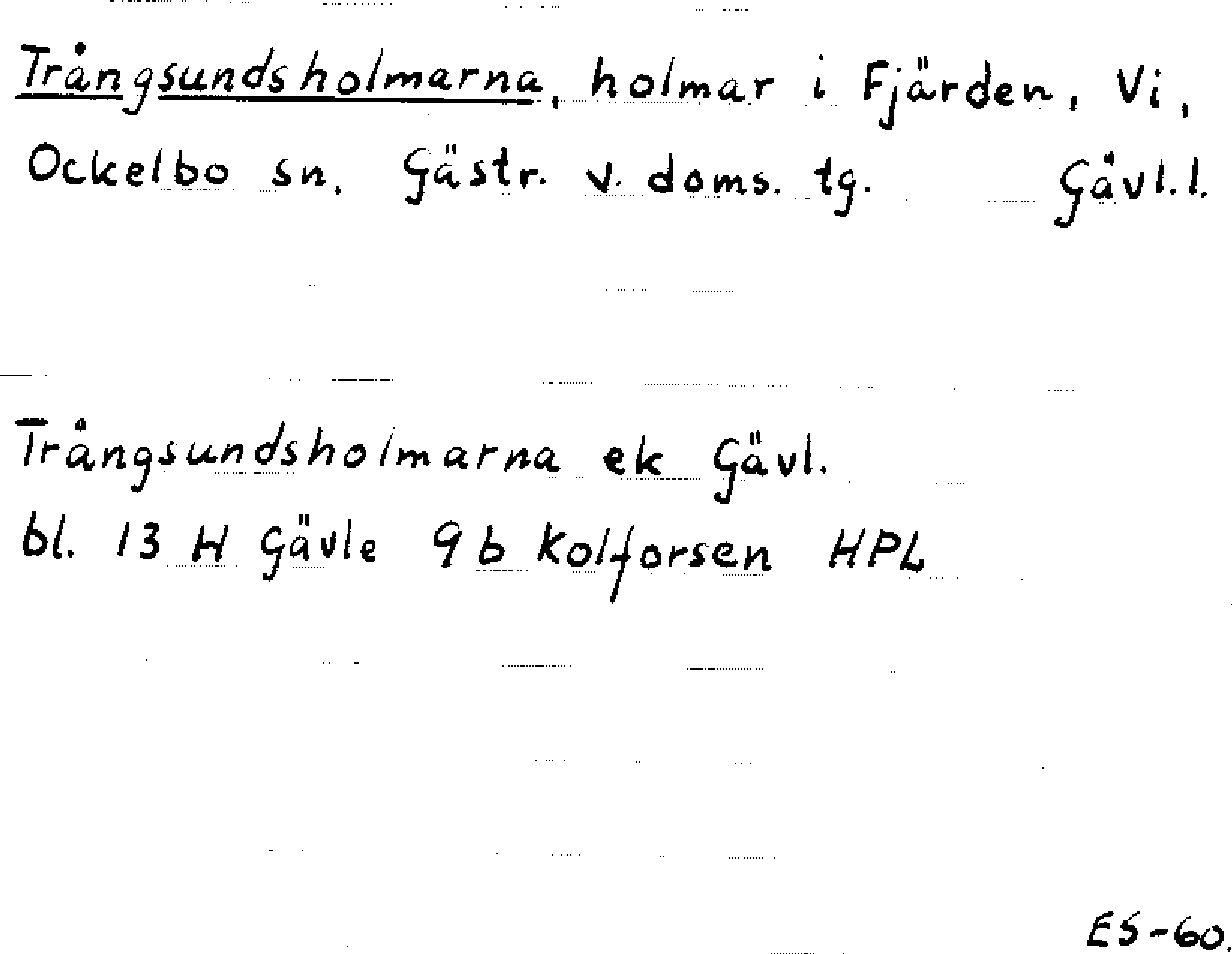 Trångsundsholmarna, holmar i Fjärden, Vi,
Ockelbo sn. Gästr. v. doms. tg. Gävl.l.
Trångsundsholmarna ek Gävl.
bl. 13 H Gävle 9 b Kolforsen HPL
ES-60.